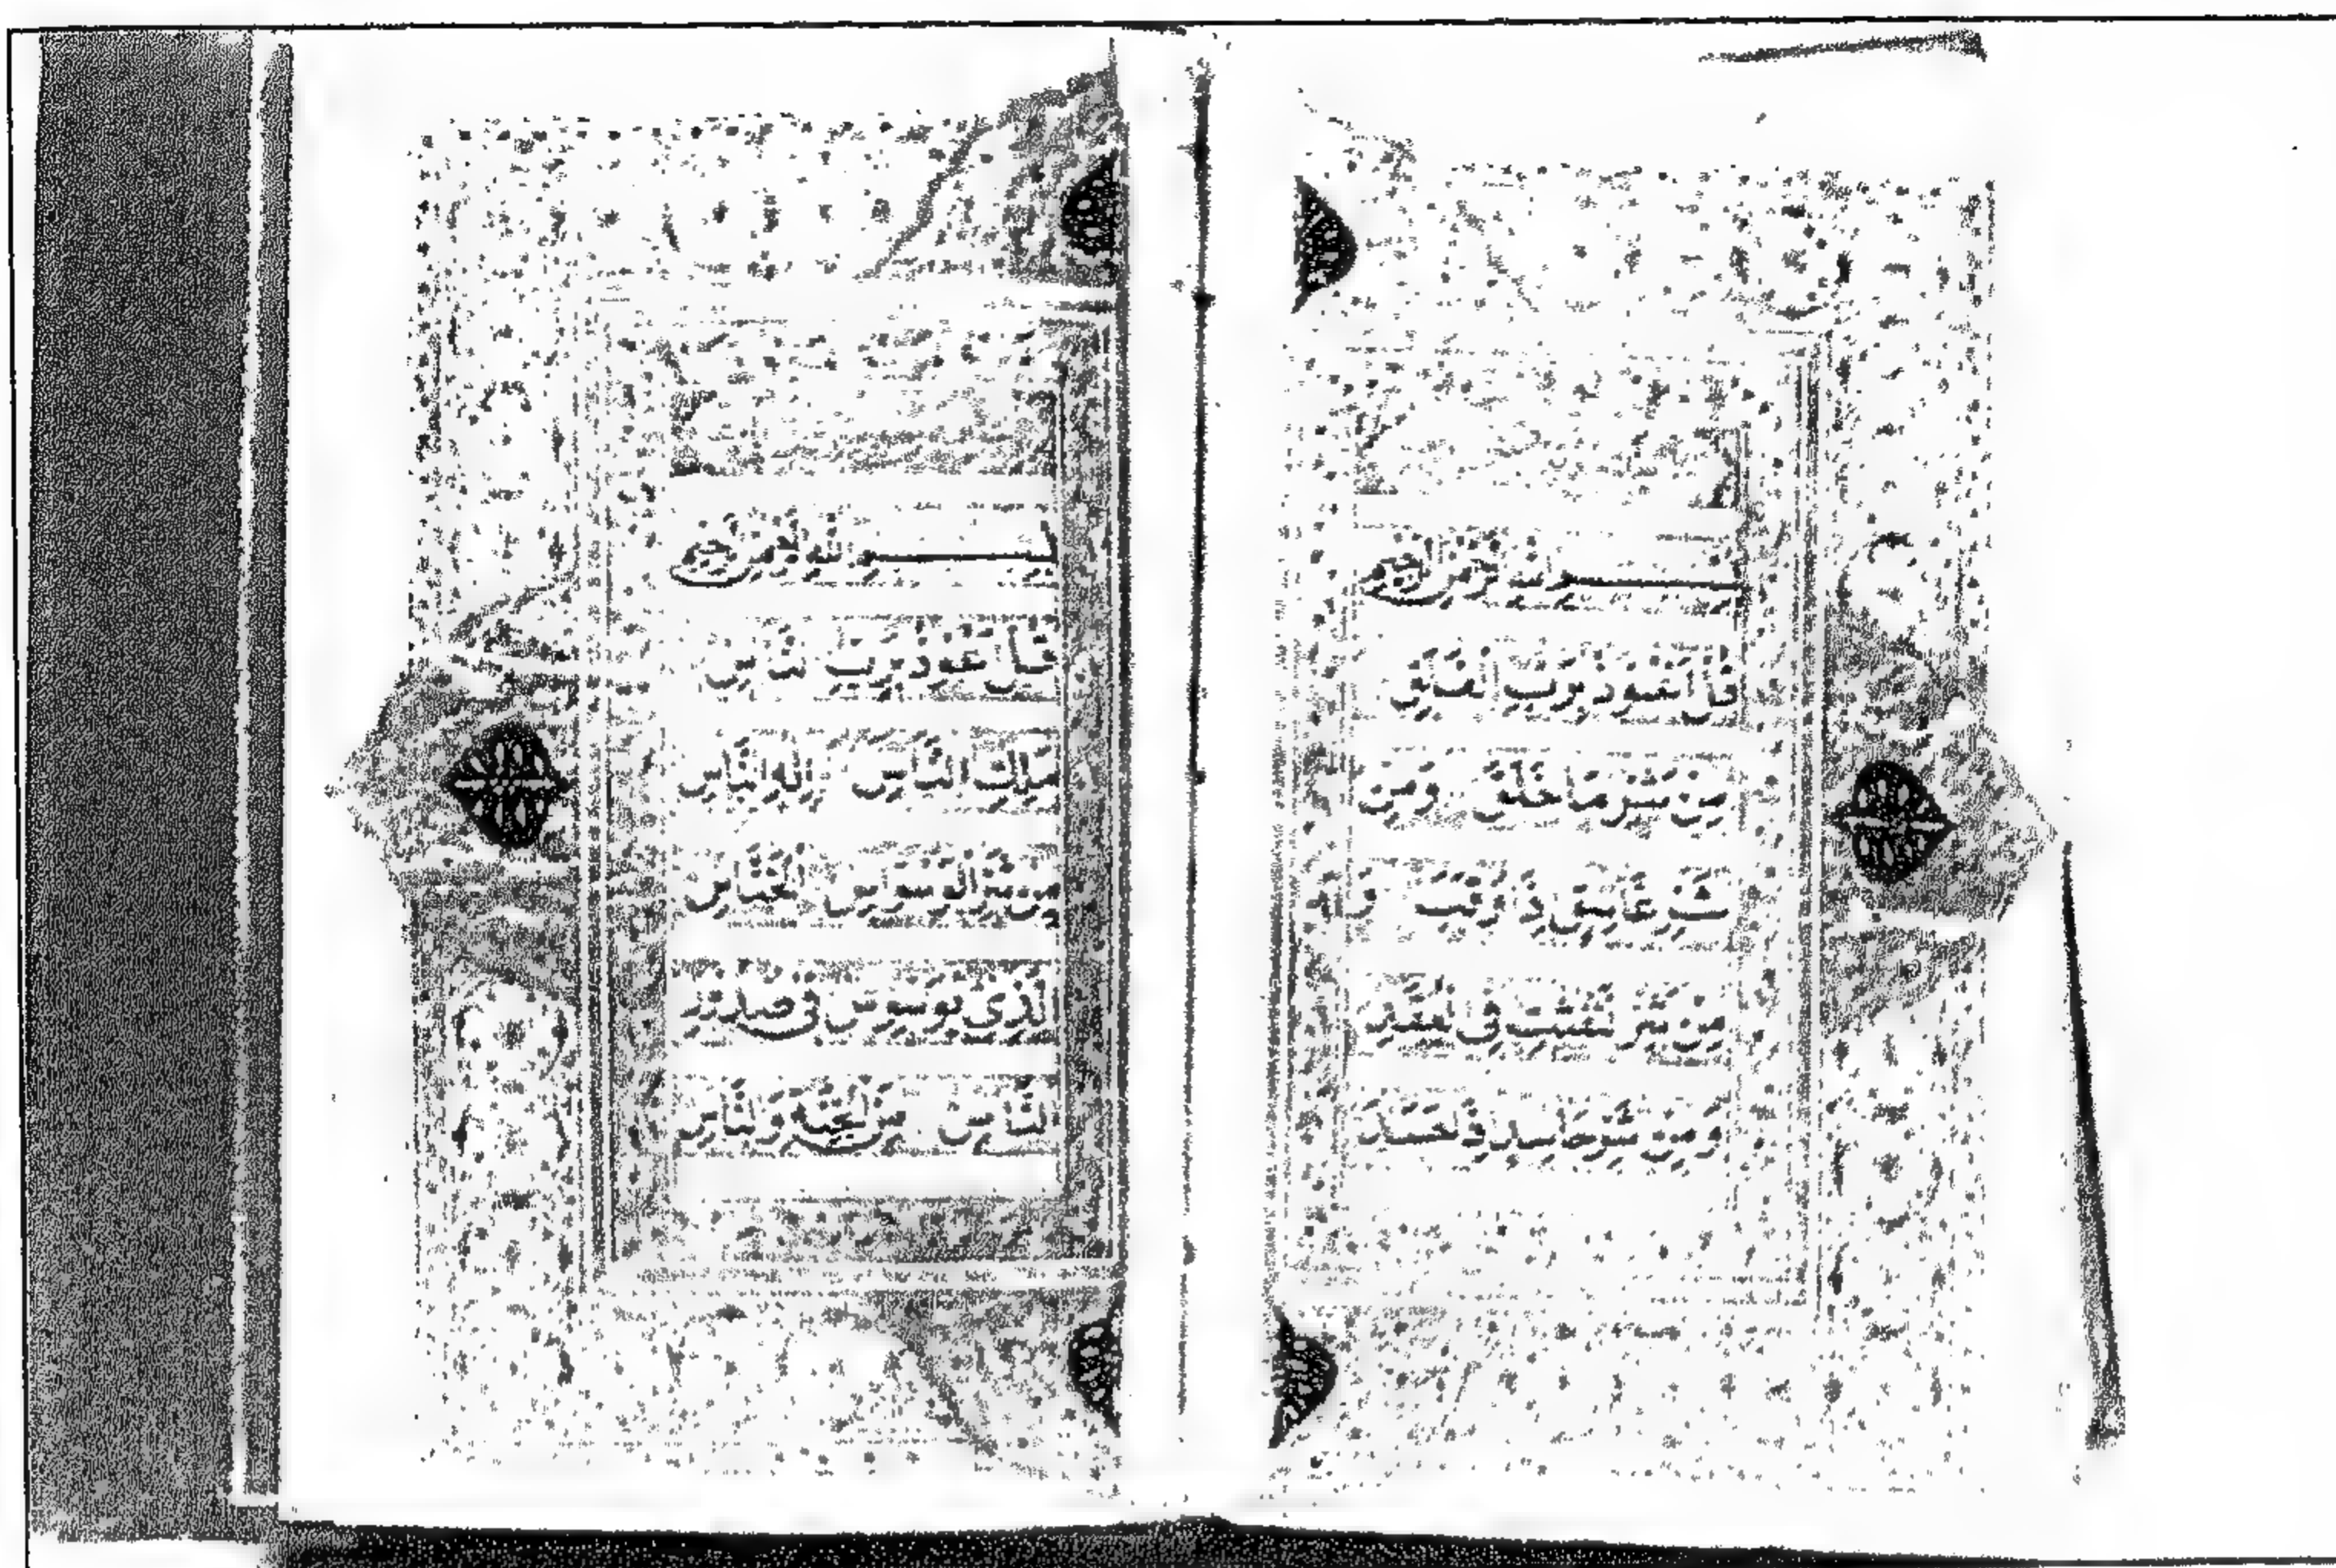 بسم الله الرحمن الرحيم
قل اعوذ برب الفلق
من شر ما خلق ومن
شر غاسق اذا وقب و
من شر النفثت فى العقد
ومن شر حاسد اذا حسد
بسم الله الرحمن الرحيم
قل اعوذ برب الناس
ملك الناس اله الناس
من شر الوسواس الخناس
الذى يوسوس فى صدور
الناس من الجنة والناس